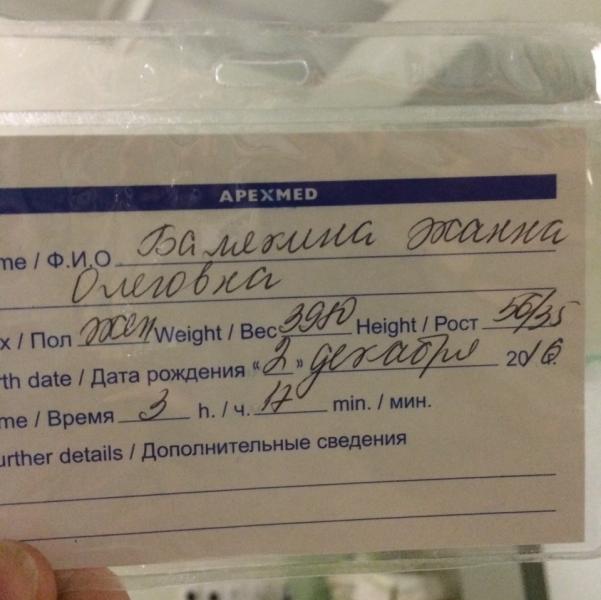 APEXMED
me / Ф.И.О Балякина Жанна
Олеговна
x / Пол жен Weight / Вес 3980 Height / Рост 56/35
th date / Дата рождения «2» декабря 2016
me / Время 3 h. / ч. 17 min. / мин.
urther details / Дополнительные сведения